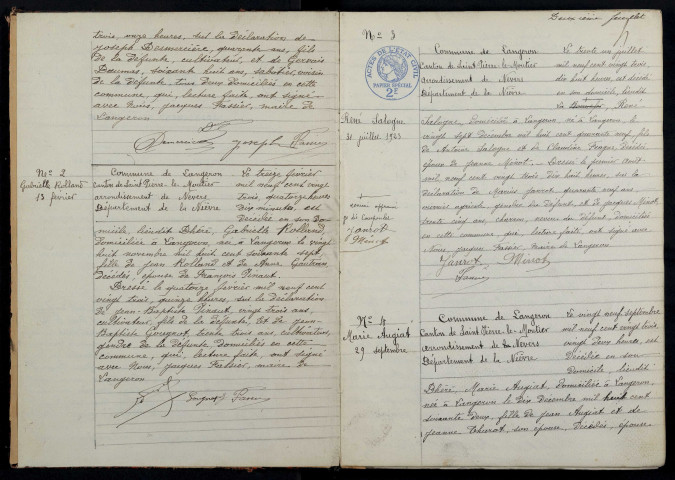 trois, onze heures, sur la Déclaration de
Joseph quarante ans, fils
de la Défunte, cultivateur, et de Gervais
soixante huit ans, sabotier, voisin
de la Défunte, tous Deux Domiciliés en cette
commune, qui, lecture faite, ont signé
avec Nous, Jacques Passier, maire de
Langeron
No 2
Gabrielle Rolland
13 février
Commune de Langeron
Canton de Saint Pierre-le-Moutier
arrondissement de Nevers
Département de la Nièvre
Le treize février
mil neuf cent vingt
trois, quatorze heures
Dix minutes, est
Décédée en son Do-
micile, lieudit Gabrielle Rolland,
Domiciliée à Langeron, née à Langeron le vingt
huit novembre mil huit cent soixante sept,
fille de Jean Rolland et de Anne Gautron,
Décédés, épouse de François Piraut.
Dressé le quatorze février mil neuf cent
vingt trois, quinze heures, sur la Déclaration
de Jean-Baptiste Piraut, vingt trois ans,
cultivateur, fils de la Défunte, et de Jean-
Baptiste trente trois ans, cultivateur,
gendre de la Défunte Domiciliés en cette
commune, qui, lecture faite, ont signé
avec Nous, Jacques Passier, maire de
Langeron
Deuxième feuillet
No 3
ACTES DE L'ÉTAT CIVIL
PAPIER SPÉCIAL
2F
René Salogne
31 juillet 1923
Commune de Langeron
Canton de Saint Pierre-le-Moutier
arrondissement de Nevers
Département de la Nièvre
Le trente un juillet
mil neuf cent vingt trois,
dix huit heures, est décédé
en son domicile, lieudit
René
Salogne, Domicilié à Langeron né à Langeron, le
vingt sept Décembre mil huit cent quarante neuf, fils
de Antoine Salogne et de Claudine Décédés,
époux de Jeanne Mérot. Dressé le premier août
mil neuf cent vingt trois Dix huit heures, sur la
Déclaration de Jaurot quarante cinq ans,
ouvrier agricole, gendre du Défunt, et de Jacques Mérot
trente cinq ans, charron, neveu du Défunt, Domiciliés
en cette commune, qui, lecture faite ont signé avec
Nous, Jacques Passier, maire de Langeron
Jaurot
Mérot
No 4
Marie Augiat
29 septembre
Commune de Langeron
Canton de Saint Pierre-le-Moutier
arrondissement de Nevers
Département de la Nièvre
Le vingt neuf septembre
mil neuf cent vingt trois,
vingt Deux heures, est
Décédée en son
domicile, lieudit
Marie Augiat, Domiciliée à Langeron
née à Langeron le Dix Décembre mil huit cent
soixante deux, fille de Jean Augiat et de
Jeanne son épouse, Décédés, épouse